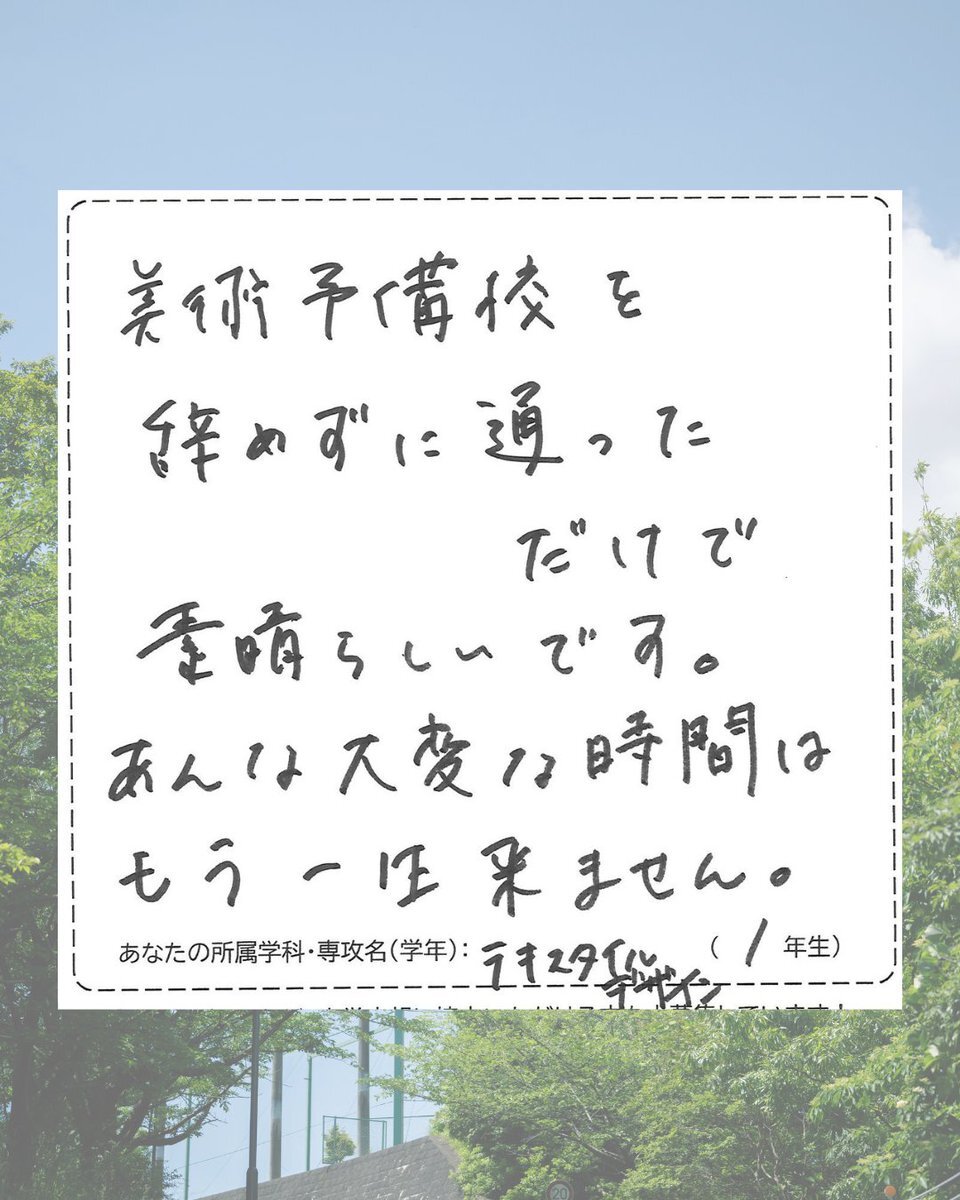 美術予備校を
辞めずに通った
だけで
素晴らしいです。
あんな大変な時間は
もう一生来ません。
あなたの所属学科・専攻名(学年): テキスタイルデザイン ( 1 年生)
20